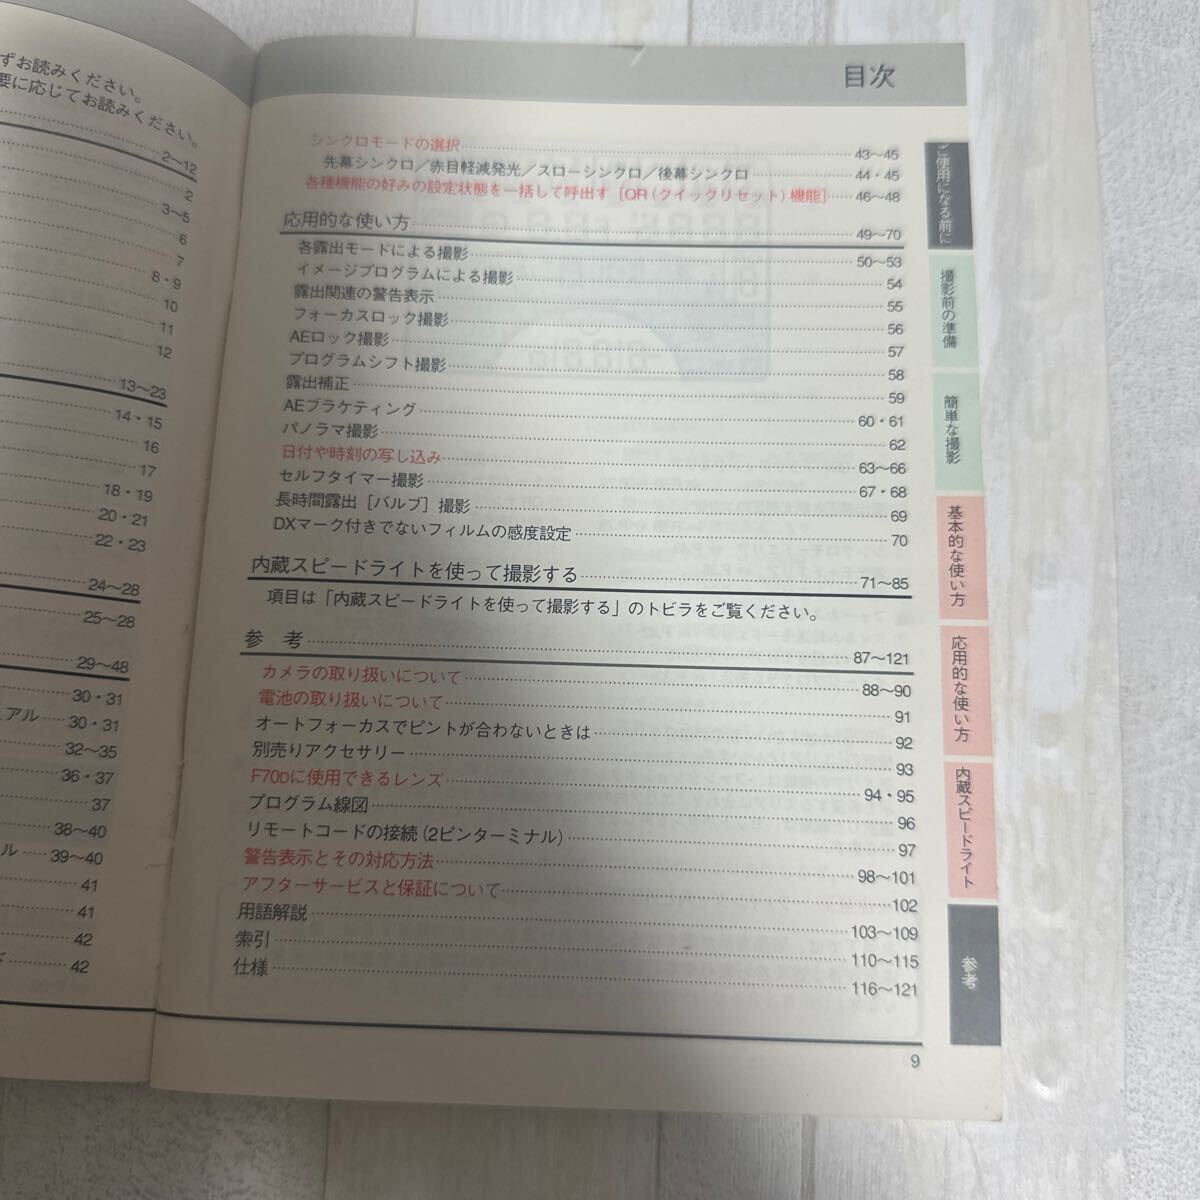 ずお読みください。
要に応じてお読みください。
2〜12
2
3〜5
6
7
8・9
10
11
12
13〜23
14・15
16
17
18・19
20・21
22・23
24〜28
25〜28
29〜48
30・31
アル 30・31
32〜35
36・37
37
38〜40
ル 39〜40
41
41
42
42
目次
シンクロモードの選択 43〜45
先幕シンクロ／赤目軽減発光／スローシンクロ／後幕シンクロ 44・45
各種機能の好みの設定状態を一括して呼出す［QR（クイックリセット）機能］ 46〜48
応用的な使い方 49〜70
各露出モードによる撮影 50〜53
イメージプログラムによる撮影 54
露出関連の警告表示 55
フォーカスロック撮影 56
AEロック撮影 57
プログラムシフト撮影 58
露出補正 59
AEブラケティング 60・61
パノラマ撮影 62
日付や時刻の写し込み 63〜66
セルフタイマー撮影 67・68
長時間露出［バルブ］撮影 69
DXマーク付きでないフィルムの感度設定 70
内蔵スピードライトを使って撮影する 71〜85
項目は「内蔵スピードライトを使って撮影する」のトビラをご覧ください。
参　考 87〜121
カメラの取り扱いについて 88〜90
電池の取り扱いについて 91
オートフォーカスでピントが合わないときは 92
別売りアクセサリー 93
F70Dに使用できるレンズ 94・95
プログラム線図 96
リモートコードの接続（2ピンターミナル） 97
警告表示とその対応方法 98〜101
アフターサービスと保証について 102
用語解説 103〜109
索引 110〜115
仕様 116〜121
9
ご使用になる前に
撮影前の準備
簡単な撮影
基本的な使い方
応用的な使い方
内蔵スピードライト
参考